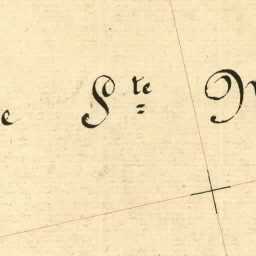 e Ste